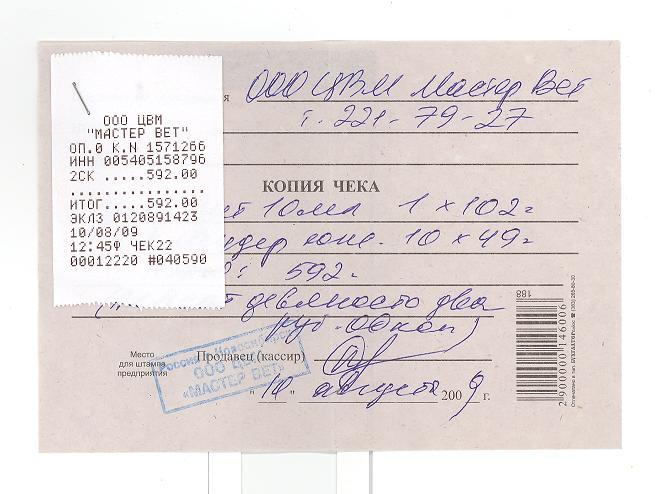 ООО ЦВМ
"МАСТЕР ВЕТ"
ОП.0 К.N 1571266
ИНН 005405158796
2СК .....592.00
ИТОГ.....592.00
ЭКЛЗ 0120891423
10/08/09
12:45Ф ЧЕК22
00012220 #040590
я ООО ЦВМ Мастер Вет
т. 221-79-27
КОПИЯ ЧЕКА
10мл 1 x 102=
10 x 49=
592=
девяносто два
руб. 00коп)
Место
для штампа
предприятия
Продавец (кассир)
Россия Новосибирск
ООО ЦВМ
«МАСТЕР ВЕТ»
"10" августа 2009 г.
188
2 900000 146006